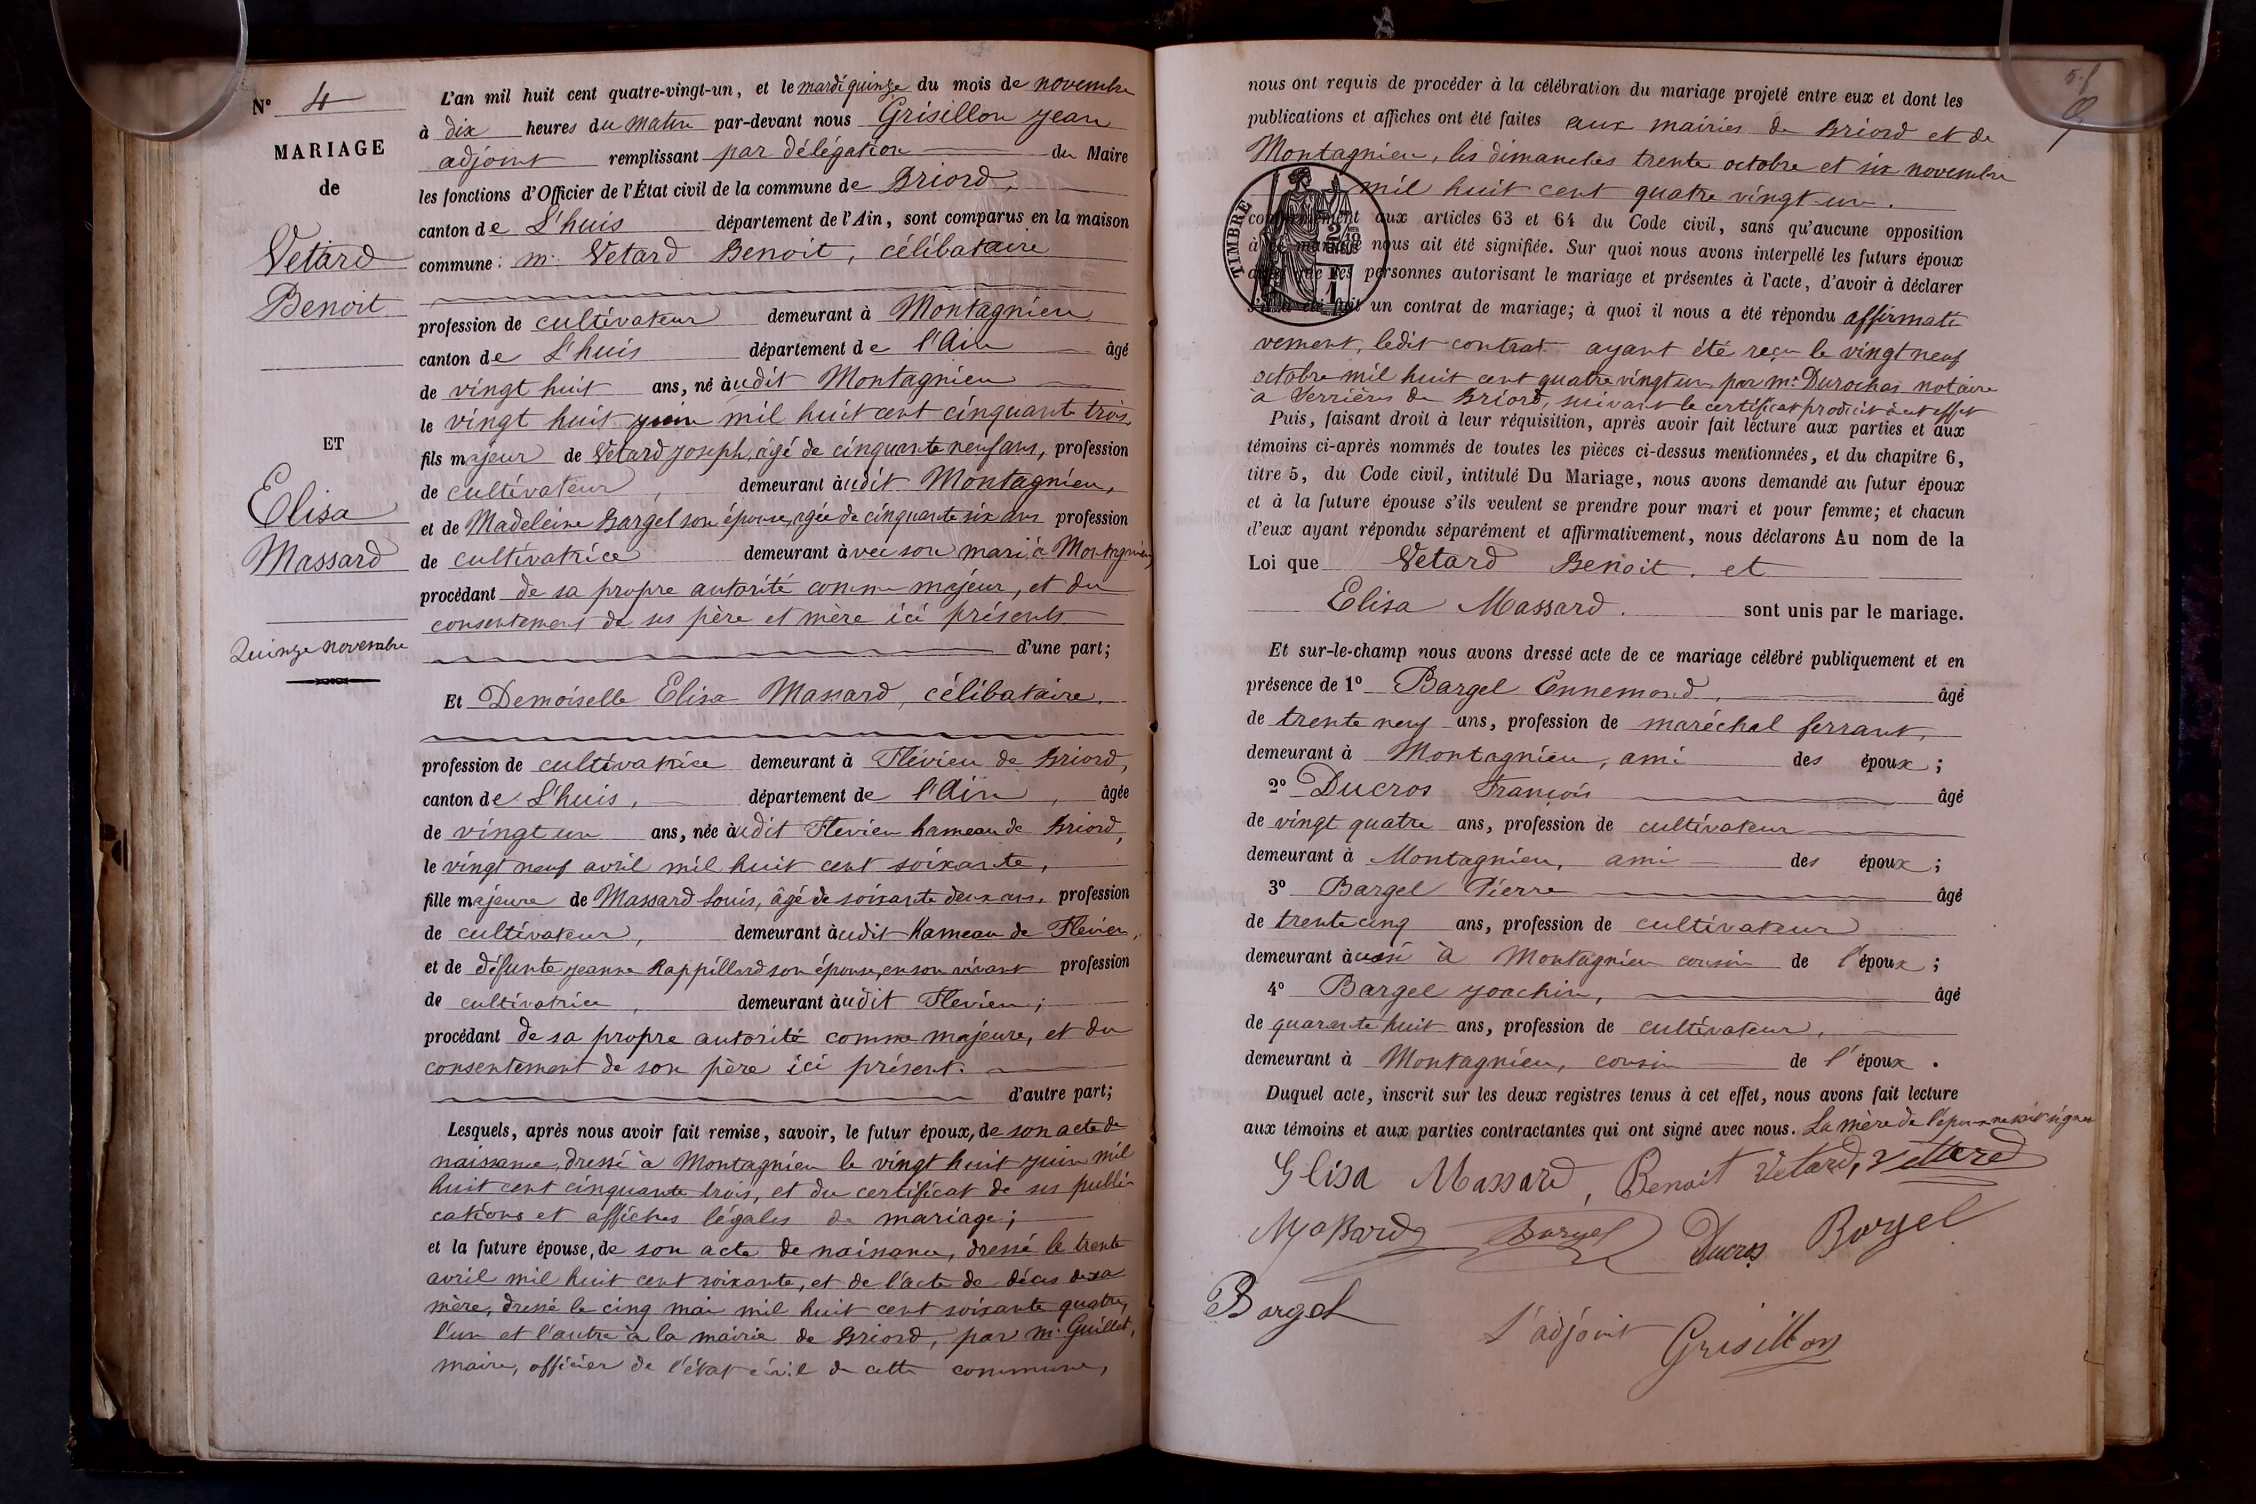 N° 4
MARIAGE
de
Vetard
Benoit
ET
Elisa
Massard
Quinze novembre
L'an mil huit cent quatre-vingt-un, et le mardi quinze du mois de novembre
à dix heures du matin par-devant nous Grisillon Jean
adjoint remplissant par délégation du Maire
les fonctions d'Officier de l'État civil de la commune de Briord,
canton de L'huis département de l'Ain, sont comparus en la maison
commune: m. Vetard Benoit, célibataire
profession de cultivateur demeurant à Montagnieu
canton de L'huis département de l'Ain âgé
de vingt huit ans, né àudit Montagnieu
le vingt huit juin mil huit cent cinquante trois,
fils majeur de Vetard Joseph, âgé de cinquante neuf ans, profession
de cultivateur, demeurant àudit Montagnieu,
et de Madeleine Bargel son épouse, agée de cinquante six ans profession
de cultivatrice demeurant àvec son mari à Montagnieu,
procédant de sa propre autorité comme majeur, et du
consentement de ses père et mère ici présents
d'une part;
Et Demoiselle Elisa Massard, célibataire.
profession de cultivatrice demeurant à Flévieu de Briord,
canton de L'huis, département de l'Ain, âgée
de vingt un ans, née àudit Flevieu hameau de Briord,
le vingt neuf avril mil huit cent soixante,
fille majeure de Massard Louis, âgé de soixante deux ans, profession
de cultivateur, demeurant àudit hameau de Flevieu,
et de défunte Jeanne Rappillard son épouse, en son vivant profession
de cultivatrice, demeurant àudit Flevieu;
procédant de sa propre autorité comme majeure, et du
consentement de son père ici présent.
d'autre part;
Lesquels, après nous avoir fait remise, savoir, le futur époux, de son acte de
naissance, dressé à Montagnieu le vingt huit juin mil
huit cent cinquante trois, et du certificat de ses publi-
cations et affiches légales de mariage;
et la future épouse, de son acte de naissance, dressé le trente
avril mil huit cent soixante, et de l'acte de décès de sa
mère, dressé le cinq mai mil huit cent soixante quatre,
l'un et l'autre à la mairie de Briord, par m. Guillet,
maire, officier de l'état civil de cette commune,
nous ont requis de procéder à la célébration du mariage projeté entre eux et dont les
publications et affiches ont été faites aux mairies de Briord et de
Montagnieu, les dimanches trente octobre et six novembre
mil huit cent quatre vingt-un.
TIMBRE
conformément aux articles 63 et 64 du Code civil, sans qu'aucune opposition
à ce mariage nous ait été signifiée. Sur quoi nous avons interpellé les futurs époux
ainsi que les personnes autorisant le mariage et présentes à l'acte, d'avoir à déclarer
s'il a été fait un contrat de mariage; à quoi il nous a été répondu affirmati
vement, ledit contrat ayant été reçu le vingt neuf
octobre mil huit cent quatre vingt un par m. Durochas notaire
à Serrières de Briord, suivant le certificat produit à cet effet
Puis, faisant droit à leur réquisition, après avoir fait lecture aux parties et aux
témoins ci-après nommés de toutes les pièces ci-dessus mentionnées, et du chapitre 6,
titre 5, du Code civil, intitulé Du Mariage, nous avons demandé au futur époux
et à la future épouse s'ils veulent se prendre pour mari et pour femme; et chacun
d'eux ayant répondu séparément et affirmativement, nous déclarons Au nom de la
Loi que Vetard Benoit. et
Elisa Massard. sont unis par le mariage.
Et sur-le-champ nous avons dressé acte de ce mariage célébré publiquement et en
présence de 1° Bargel Ennemond, âgé
de trente neuf ans, profession de maréchal ferrant,
demeurant à Montagnieu, ami des époux;
2° Ducros François âgé
de vingt quatre ans, profession de cultivateur
demeurant à Montagnieu, ami des époux;
3° Bargel Pierre âgé
de trente cinq ans, profession de cultivateur
demeurant àussi à Montagnieu cousin de l'époux;
4° Bargel Joachin, âgé
de quarante huit ans, profession de cultivateur,
demeurant à Montagnieu, cousin de l'époux.
Duquel acte, inscrit sur les deux registres tenus à cet effet, nous avons fait lecture
aux témoins et aux parties contractantes qui ont signé avec nous. La mère de l'époux ne sait signer
Elisa Massard, Benoit Vetard, Vetard
Massard Bargel Ducros Bargel
Bargel
L'adjoint Grisillon